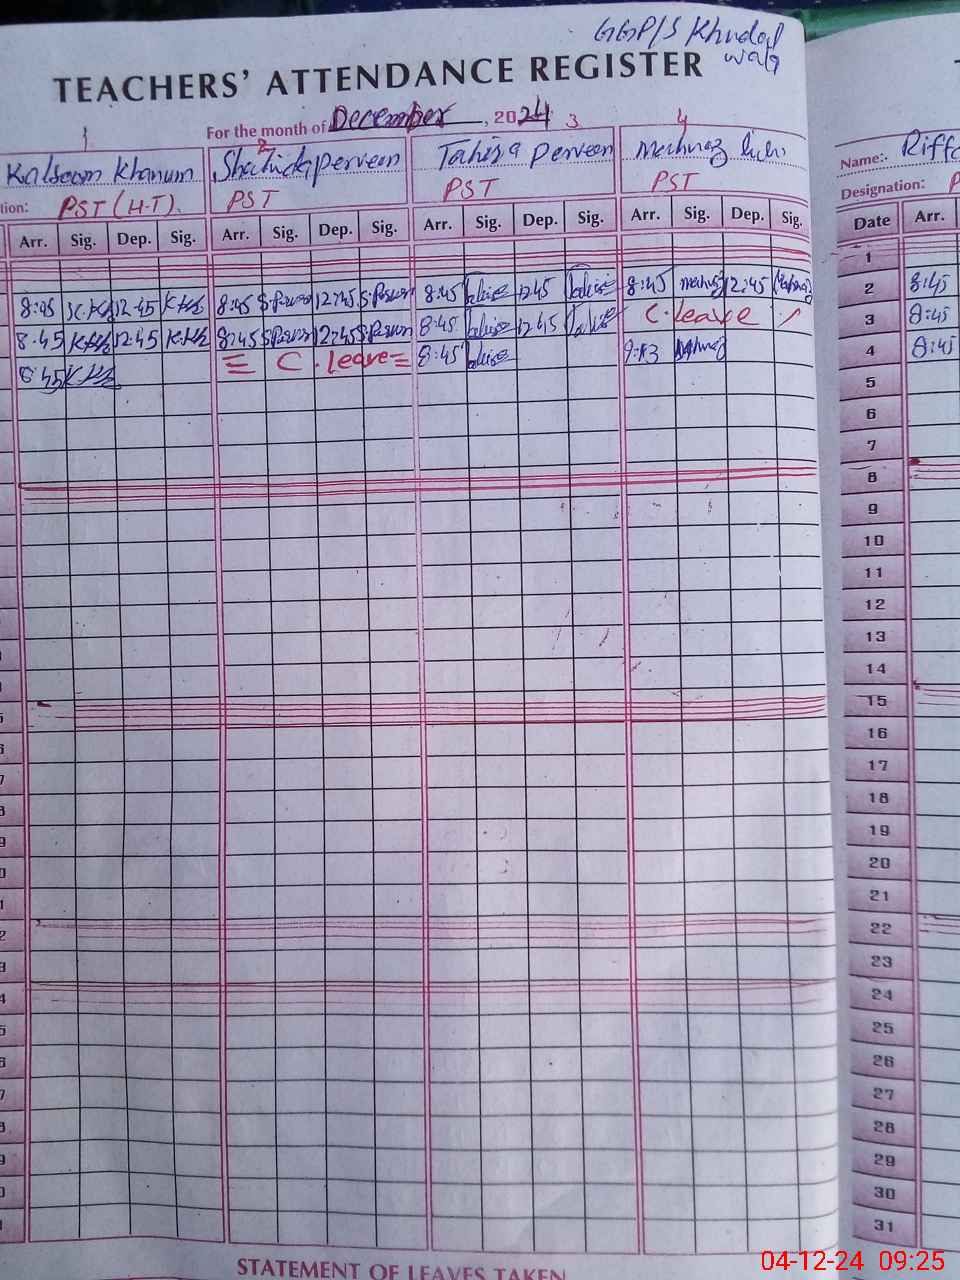 GGP/S Khudal
wala
TEACHERS' ATTENDANCE REGISTER
For the month of December, 2024
1 2 3 4
Kalsoom Khanum Shahida perveen Tahira perveen Mehnaz bibi Name:- Riff
tion: PST (H.T). PST PST PST Designation: P
Arr. Sig. Dep. Sig. Arr. Sig. Dep. Sig. Arr. Sig. Dep. Sig. Arr. Sig. Dep. Sig. Date Arr.
1
8:45 12:45 8:45 12:45 8:45 12:45 8:45 12:45 2 8:45
8:45 12:45 8:45 12:45 8:45 12:45 C. leave 3 8:45
8:45 C. leave 8:45 9:13 4 8:45
5
6
7
8
9
10
11
12
13
14
15
16
17
18
19
20
21
22
23
24
25
26
27
28
29
30
31
STATEMENT OF LEAVES TAKEN
04-12-24 09:25